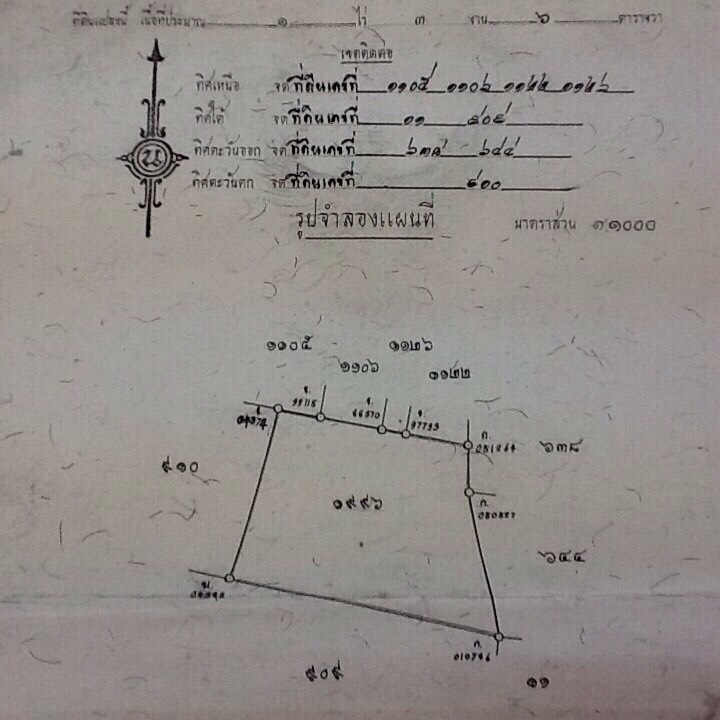 ที่ดินแปลงนี้ เนื้อที่ประมาณ ๑ ไร่ ๓ งาน ๖ ตารางวา
เขตติดต่อ
ทิศเหนือ จด ที่ดินเลขที่ ๑๑๐๕ ๑๑๐๖ ๑๑๒๒ ๑๑๒๖
ทิศใต้ จด ที่ดินเลขที่ ๑๑ ๙๐๙
ทิศตะวันออก จด ที่ดินเลขที่ ๖๓๘ ๖๔๔
ทิศตะวันตก จด ที่ดินเลขที่ ๙๑๐
น
รูปจำลองแผนที่ มาตราส่วน ๑:๑๐๐๐
๑๑๐๕ ๑๑๒๖
๑๑๐๖ ๑๑๒๒
๖๓๘
๙๑๐
๑๙๙๖
๖๔๔
๙๐๙ ๑๑